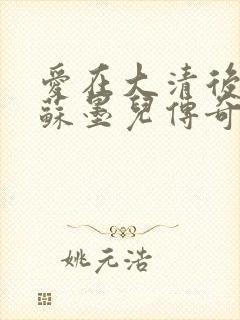 愛在大清後
蘇墨兒傳奇
姚元浩